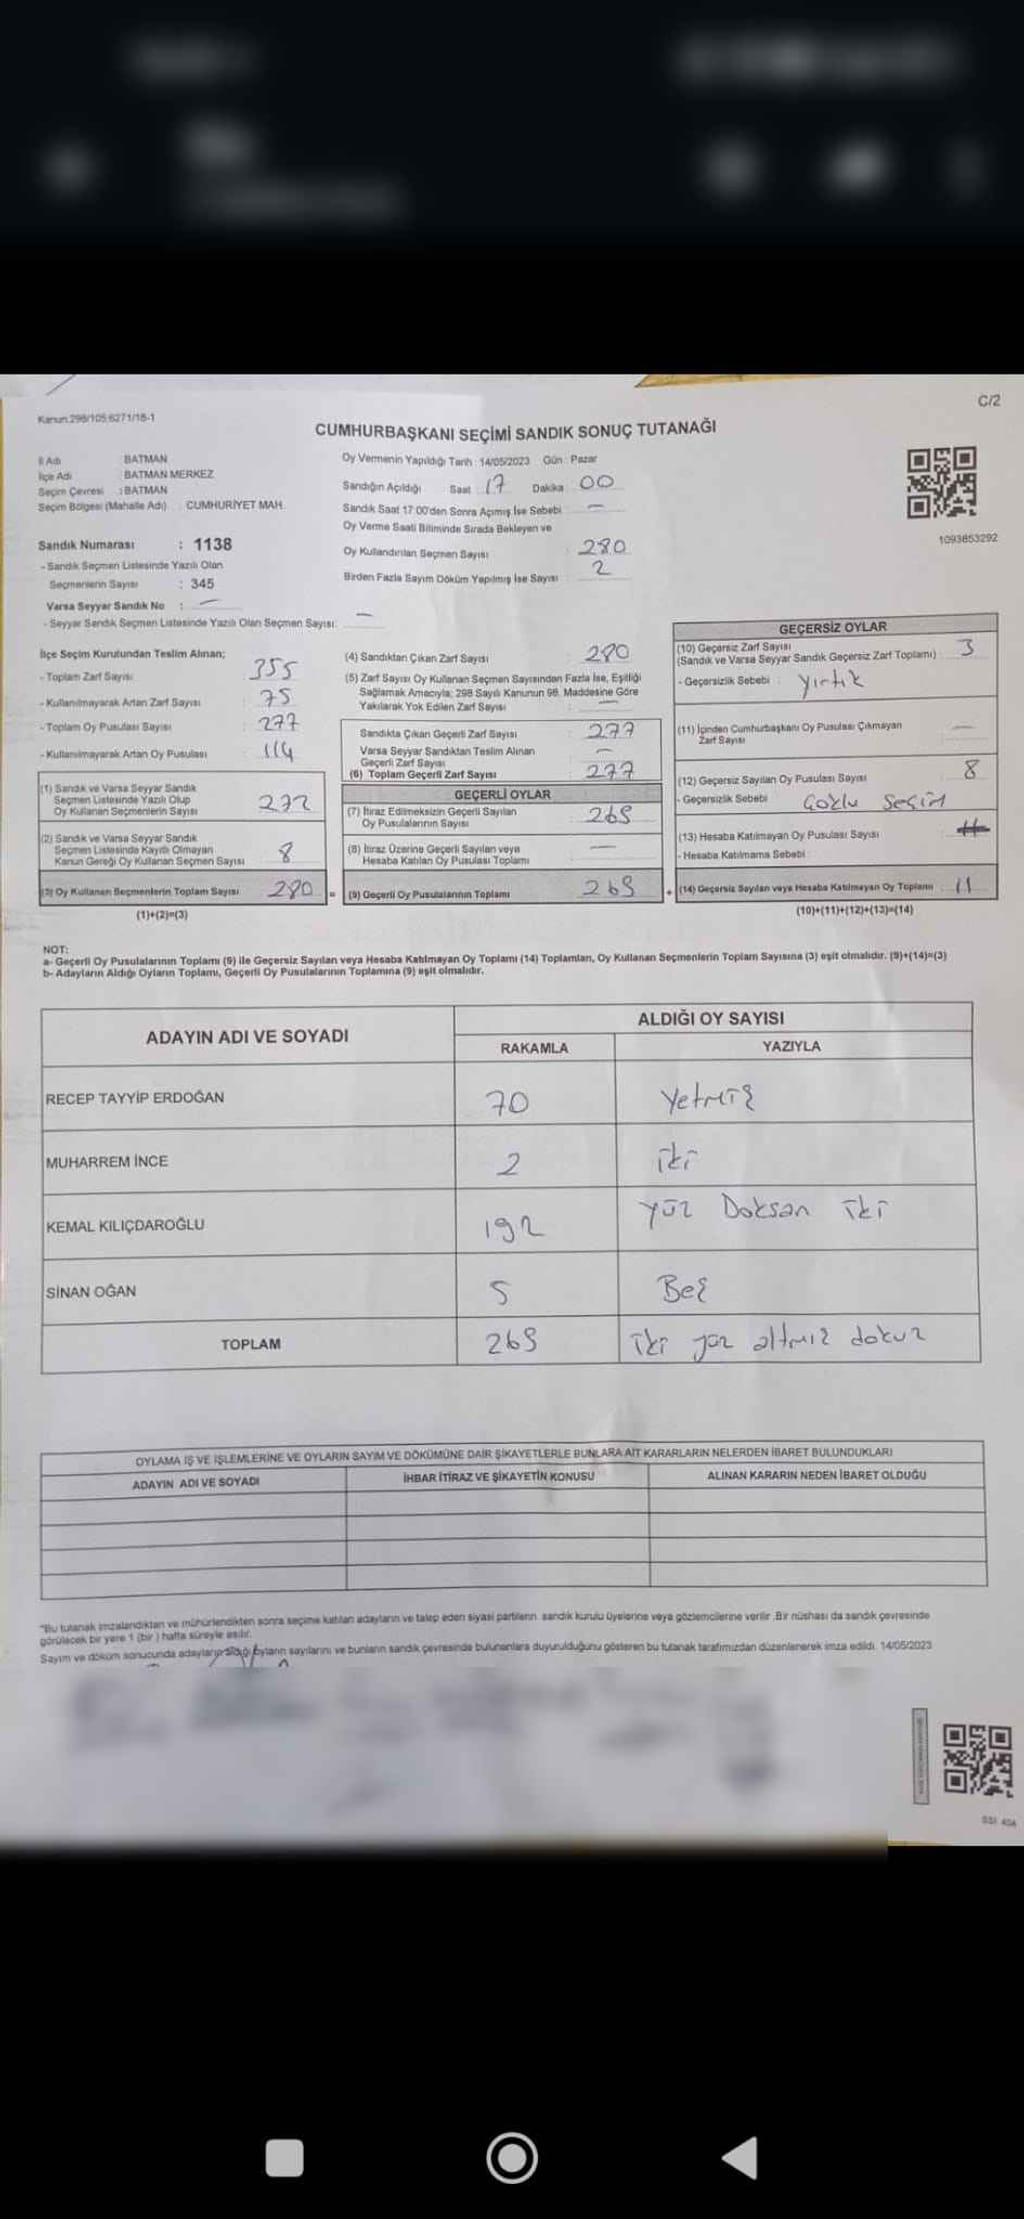 C/2
Kanun:298/105;6271/18-1
CUMHURBAŞKANI SEÇİMİ SANDIK SONUÇ TUTANAĞI
İl Adı : BATMAN
İlçe Adı : BATMAN MERKEZ
Seçim Çevresi : BATMAN
Seçim Bölgesi (Mahalle Adı) : CUMHURİYET MAH.
Sandık Numarası : 1138
- Sandık Seçmen Listesinde Yazılı Olan
Seçmenlerin Sayısı : 345
Varsa Seyyar Sandık No : —
- Seyyar Sandık Seçmen Listesinde Yazılı Olan Seçmen Sayısı: —
Oy Vermenin Yapıldığı Tarih : 14/05/2023 Gün : Pazar
Sandığın Açıldığı Saat 17 Dakika 00
Sandık Saat 17:00'den Sonra Açımış İse Sebebi —
Oy Verme Saati Bitiminde Sırada Bekleyen ve
Oy Kullandırılan Seçmen Sayısı : 280
Birden Fazla Sayım Döküm Yapılmış İse Sayısı : 2
1093853292
İlçe Seçim Kurulundan Teslim Alınan;
- Toplam Zarf Sayısı : 355
- Kullanılmayarak Artan Zarf Sayısı : 75
- Toplam Oy Pusulası Sayısı : 277
- Kullanılmayarak Artan Oy Pusulası : 114
(1) Sandık ve Varsa Seyyar Sandık
Seçmen Listesinde Yazılı Olup
Oy Kullanan Seçmenlerin Sayısı 272
(2) Sandık ve Varsa Seyyar Sandık
Seçmen Listesinde Kayıtlı Olmayan
Kanun Gereği Oy Kullanan Seçmen Sayısı 8
(3) Oy Kullanan Seçmenlerin Toplam Sayısı 280 =
(1)+(2)=(3)
(4) Sandıktan Çıkan Zarf Sayısı : 280
(5) Zarf Sayısı Oy Kullanan Seçmen Sayısından Fazla İse, Eşitliği
Sağlamak Amacıyla; 298 Sayılı Kanunun 98. Maddesine Göre
Yakılarak Yok Edilen Zarf Sayısı : —
Sandıkta Çıkan Geçerli Zarf Sayısı : 277
Varsa Seyyar Sandıktan Teslim Alınan
Geçerli Zarf Sayısı : —
(6) Toplam Geçerli Zarf Sayısı : 277
GEÇERLİ OYLAR
(7) İtiraz Edilmeksizin Geçerli Sayılan
Oy Pusulalarının Sayısı : 269
(8) İtiraz Üzerine Geçerli Sayılan veya
Hesaba Katılan Oy Pusulası Toplamı : —
(9) Geçerli Oy Pusulalarının Toplamı : 269 +
GEÇERSİZ OYLAR
(10) Geçersiz Zarf Sayısı
(Sandık ve Varsa Seyyar Sandık Geçersiz Zarf Toplamı) : 3
- Geçersizlik Sebebi : Yırtık
(11) İçinden Cumhurbaşkanı Oy Pusulası Çıkmayan
Zarf Sayısı : —
(12) Geçersiz Sayılan Oy Pusulası Sayısı : 8
- Geçersizlik Sebebi : Çoklu Seçim
(13) Hesaba Katılmayan Oy Pusulası Sayısı :
- Hesaba Katılmama Sebebi :
(14) Geçersiz Sayılan veya Hesaba Katılmayan Oy Toplamı : 11
(10)+(11)+(12)+(13)=(14)
NOT:
a- Geçerli Oy Pusulalarının Toplamı (9) ile Geçersiz Sayılan veya Hesaba Katılmayan Oy Toplamı (14) Toplamları, Oy Kullanan Seçmenlerin Toplam Sayısına (3) eşit olmalıdır. (9)+(14)=(3)
b- Adayların Aldığı Oyların Toplamı, Geçerli Oy Pusulalarının Toplamına (9) eşit olmalıdır.
ADAYIN ADI VE SOYADI
ALDIĞI OY SAYISI
RAKAMLA YAZIYLA
RECEP TAYYİP ERDOĞAN 70 Yetmiş
MUHARREM İNCE 2 İki
KEMAL KILIÇDAROĞLU 192 Yüz Doksan İki
SİNAN OĞAN 5 Beş
TOPLAM 269 İki yüz altmış dokuz
OYLAMA İŞ VE İŞLEMLERİNE VE OYLARIN SAYIM VE DÖKÜMÜNE DAİR ŞİKAYETLERLE BUNLARA AİT KARARLARIN NELERDEN İBARET BULUNDUKLARI
ADAYIN ADI VE SOYADI İHBAR İTİRAZ VE ŞİKAYETİN KONUSU ALINAN KARARIN NEDEN İBARET OLDUĞU
"Bu tutanak imzalandıktan ve mühürlendikten sonra seçime katılan adayların ve talep eden siyasi partilerin sandık kurulu üyelerine veya gözlemcilerine verilir .Bir nüshası da sandık çevresinde
görülecek bir yere 1 (bir ) hafta süreyle asılır.
Sayım ve döküm sonucunda adayların aldığı oyların sayılarını ve bunların sandık çevresinde bulunanlara duyurulduğunu gösteren bu tutanak tarafımızdan düzenlenerek imza edildi. 14/05/2023